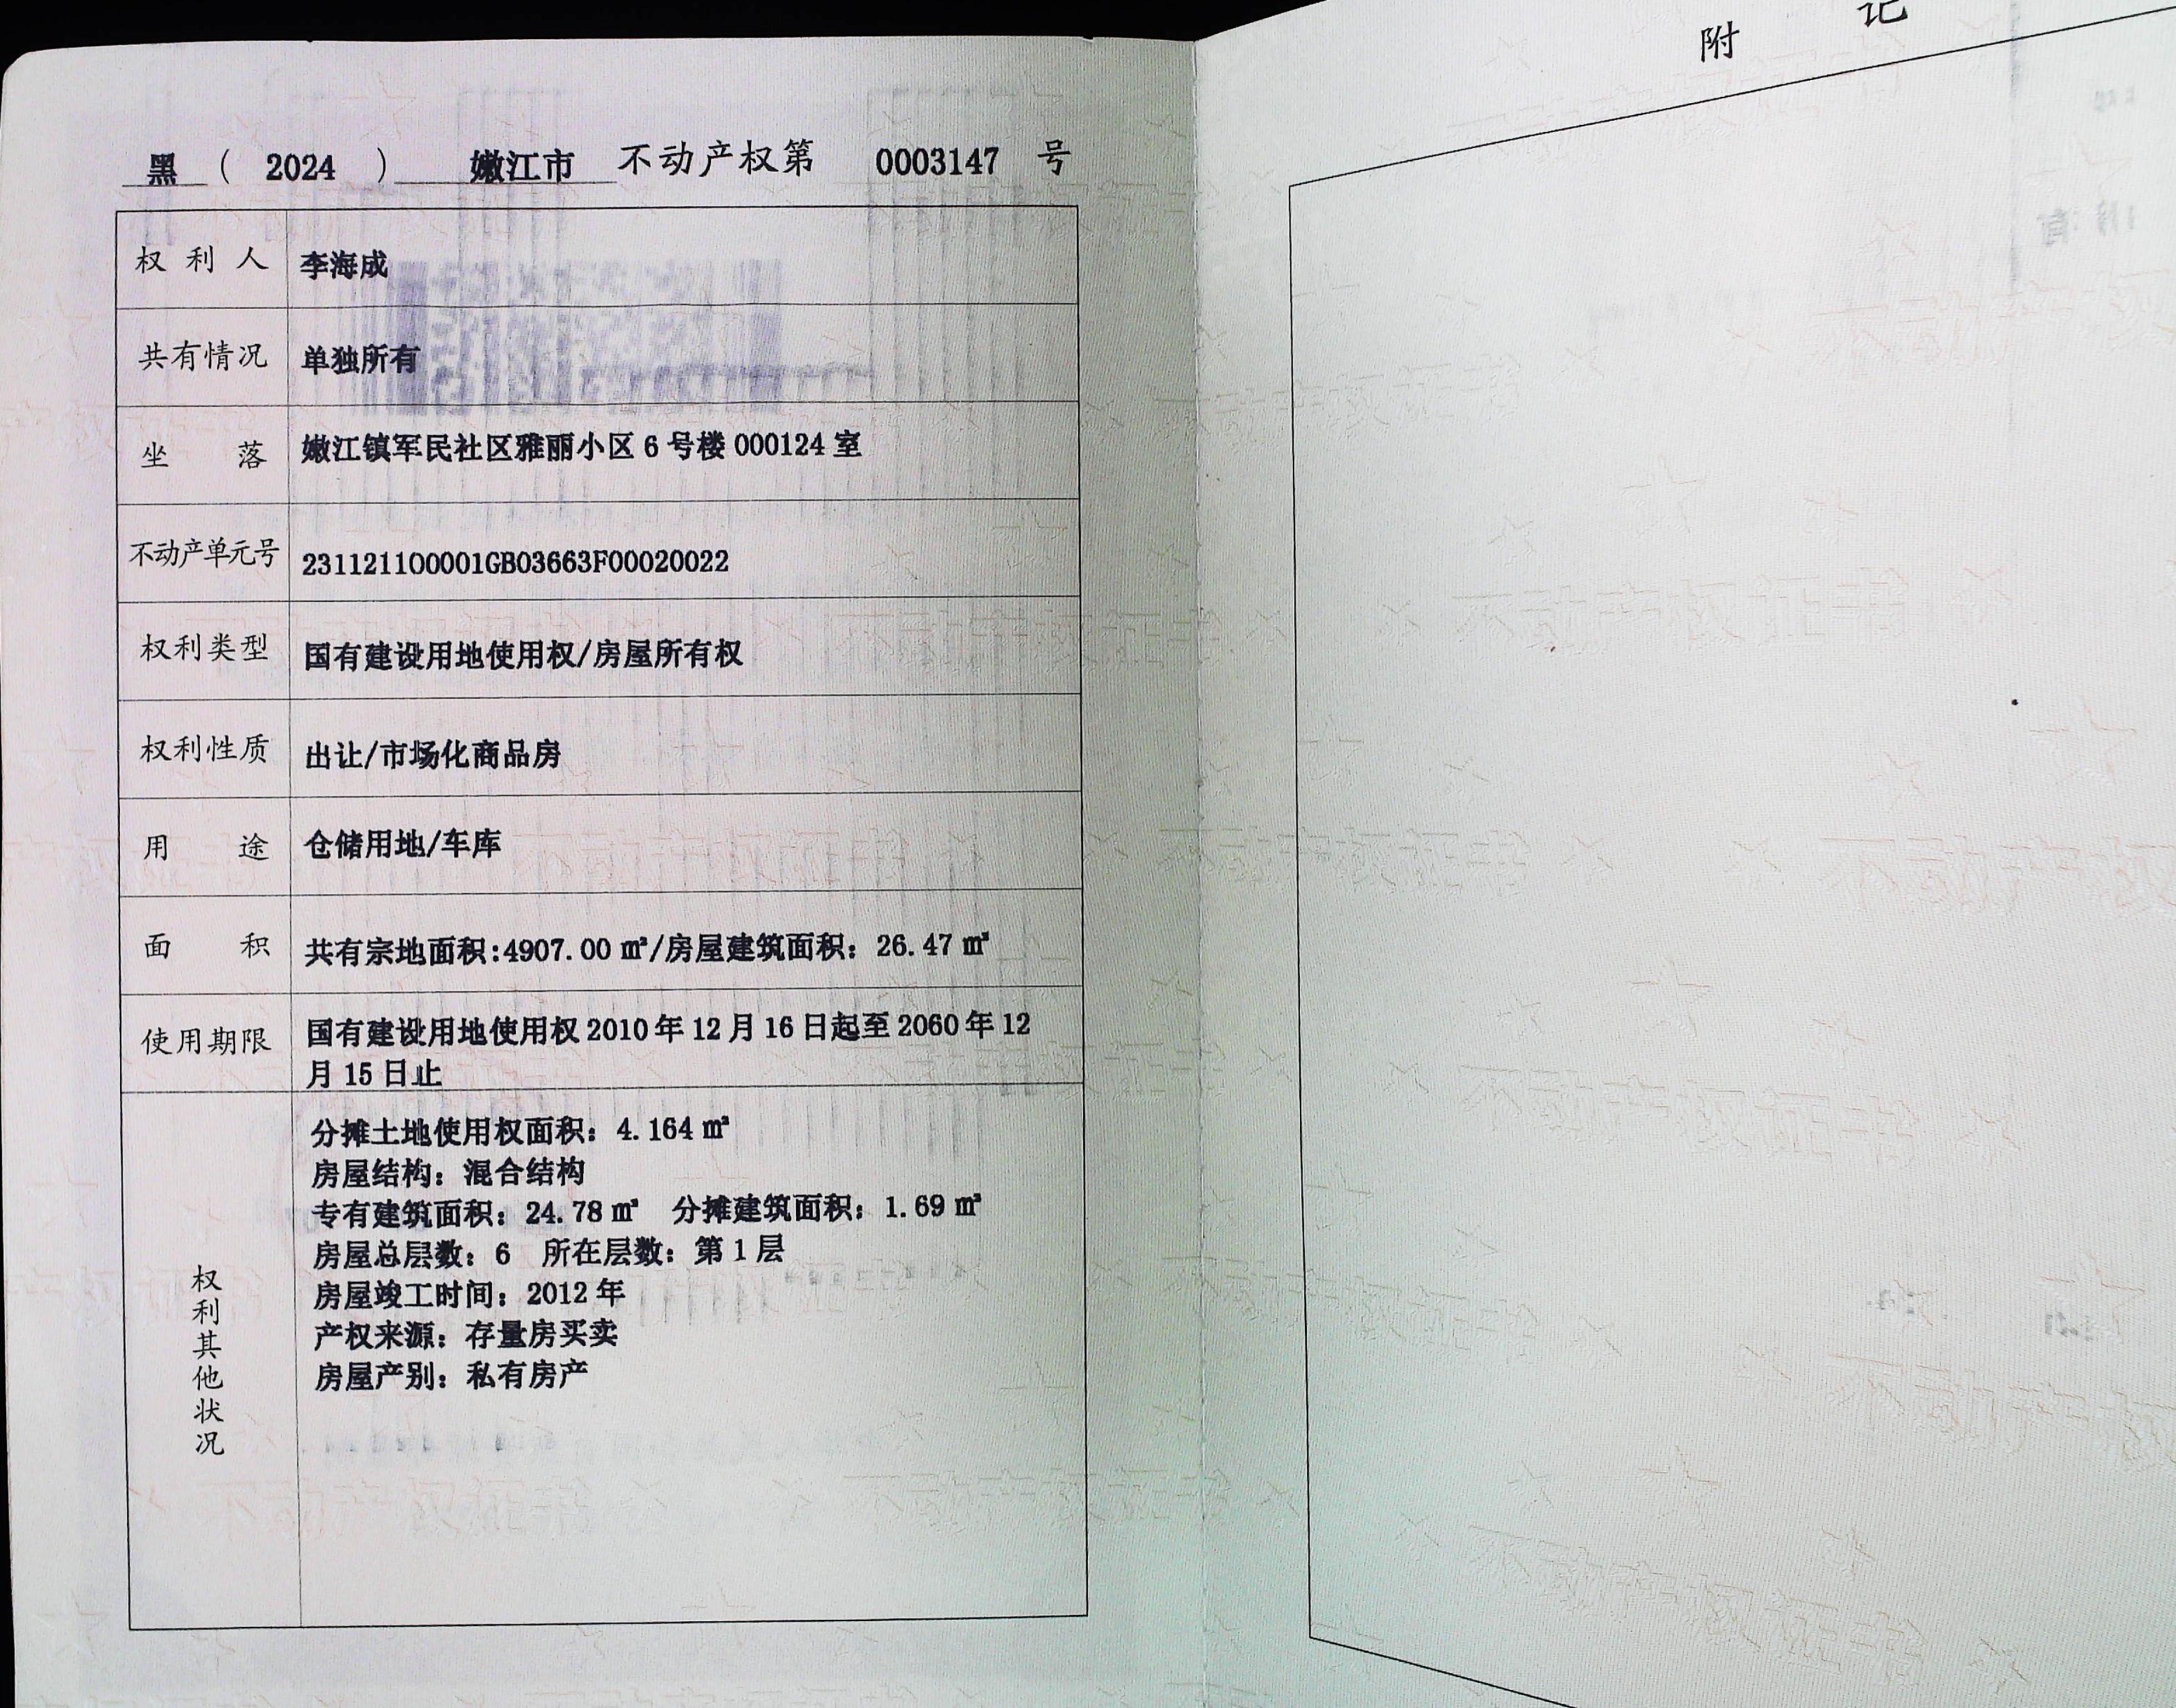 黑 ( 2024 ) 嫩江市 不动产权第 0003147 号
权利人 李海成
共有情况 单独所有
坐落 嫩江镇军民社区雅丽小区 6 号楼 000124 室
不动产单元号 231121100001GB03663F00020022
权利类型 国有建设用地使用权/房屋所有权
权利性质 出让/市场化商品房
用途 仓储用地/车库
面积 共有宗地面积:4907.00 ㎡/房屋建筑面积: 26.47 ㎡
使用期限 国有建设用地使用权 2010 年 12 月 16 日起至 2060 年 12
月 15 日止
权利其他状况
分摊土地使用权面积: 4.164 ㎡
房屋结构: 混合结构
专有建筑面积: 24.78 ㎡ 分摊建筑面积: 1.69 ㎡
房屋总层数: 6 所在层数: 第 1 层
房屋竣工时间: 2012 年
产权来源: 存量房买卖
房屋产别: 私有房产
附 记